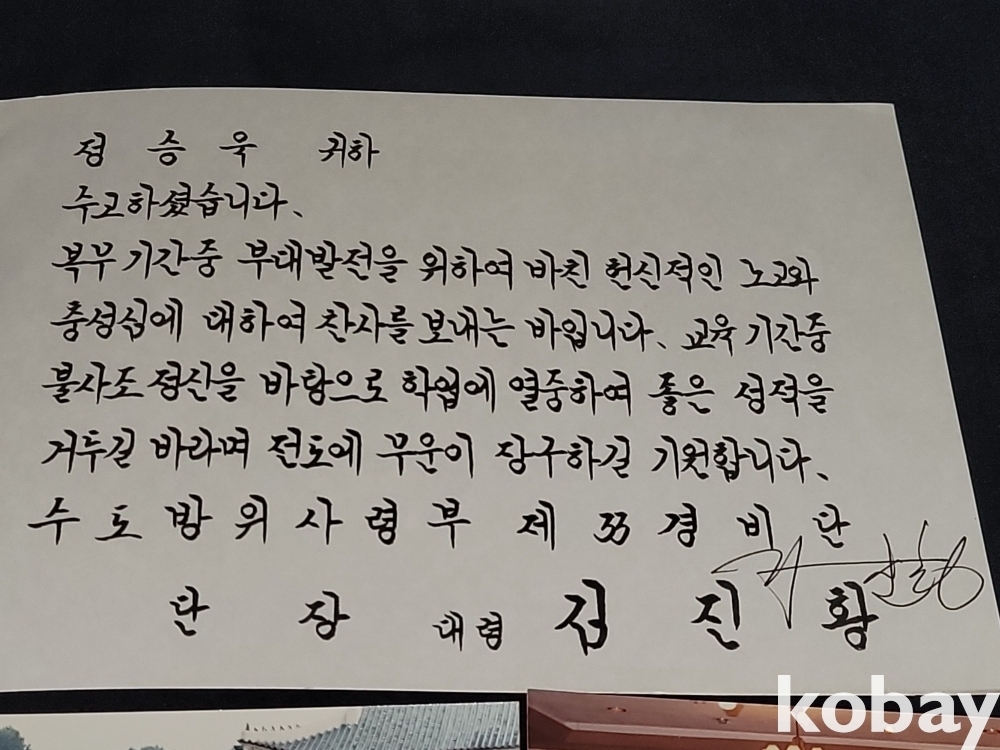 정승욱 귀하
수고하셨습니다.
복무기간중 부대발전을 위하여 바친 헌신적인 노고와
충성심에 대하여 찬사를 보내는 바입니다. 교육기간중
불사조 정신을 바탕으로 학업에 열중하여 좋은 성적을
거두길 바라며 전도에 무운이 장구하길 기원합니다.
수도방위사령부 제 33 경비단
단장 대령 김진황
kobay